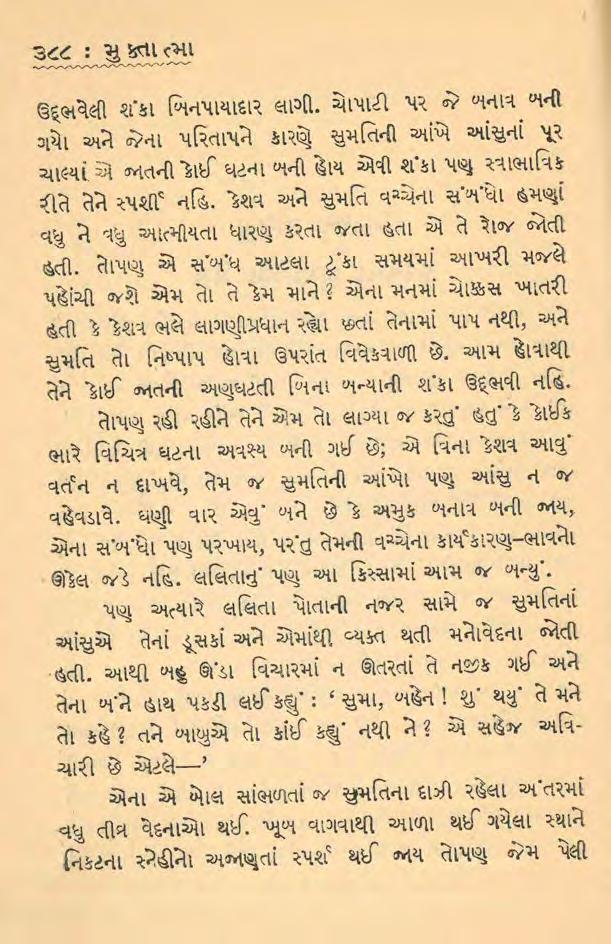 ૩૮૮ : મુક્તાત્મા
ઉદ્દભવેલી શંકા બિનપાયાદાર લાગી. ચોપાટી પર જે બનાવ બની
ગયો અને જેના પરિતાપને કારણે સુમતિની આંખે આંસુનાં પૂર
ચાલ્યાં એ જાતની કોઈ ઘટના બની હોય એવી શંકા પણ સ્વાભાવિક
રીતે તેને સ્પર્શી નહિ. કેશવ અને સુમતિ વચ્ચેના સંબંધો હમણાં
વધુ ને વધુ આત્મીયતા ધારણ કરતા જતા હતા એ તે રોજ જોતી
હતી. તોપણ એ સંબંધ આટલા ટૂંકા સમયમાં આખરી મજલે
પહોંચી જશે એમ તો તે કેમ માને? એના મનમાં ચોક્કસ ખાતરી
હતી કે કેશવ ભલે લાગણીપ્રધાન રહ્યો છતાં તેનામાં પાપ નથી, અને
સુમતિ તો નિષ્પાપ હોવા ઉપરાંત વિવેકવાળી છે. આમ હોવાથી
તેને કોઈ જાતની અણઘટતી બિના બન્યાની શંકા ઉદ્દભવી નહિ.
તોપણ રહી રહીને તેને એમ તો લાગ્યા જ કરતું હતું કે કોઈક
ભારે વિચિત્ર ઘટના અવશ્ય બની ગઈ છે; એ વિના કેશવ આવું
વર્તન ન દાખવે, તેમ જ સુમતિની આંખો પણ આંસુ ન જ
વહેવડાવે. ઘણી વાર એવું બને છે કે અમુક બનાવ બની જાય,
એના સંબંધો પણ પરખાય, પરંતુ તેમની વચ્ચેના કાર્યકારણ–ભાવનો
ઊકેલ જડે નહિ. લલિતાનું પણ આ કિસ્સામાં આમ જ બન્યું.
પણ અત્યારે લલિતા પોતાની નજર સામે જ સુમતિનાં
આંસુએ તેનાં ડૂસકાં અને એમાંથી વ્યક્ત થતી મનોવેદના જોતી
હતી. આથી બહુ ઊંડા વિચારમાં ન ઊતરતાં તે નજીક ગઈ અને
તેના બંને હાથ પકડી લઈ કહ્યું : ‘ સુમા, બહેન ! શું થયું તે મને
તો કહે ? તને બાબુએ તો કાંઈ કહ્યું નથી ને ? એ સહેજ અવિ-
ચારી છે એટલે—’
એના એ બોલ સાંભળતાં જ સુમતિના દાઝી રહેલા અંતરમાં
વધુ તીવ્ર વેદનાઓ થઈ. ખૂબ વાગવાથી આળા થઈ ગયેલા સ્થાને
નિકટના સ્નેહીનો અજાણતાં સ્પર્શ થઈ જાય તોપણ જેમ પેલી